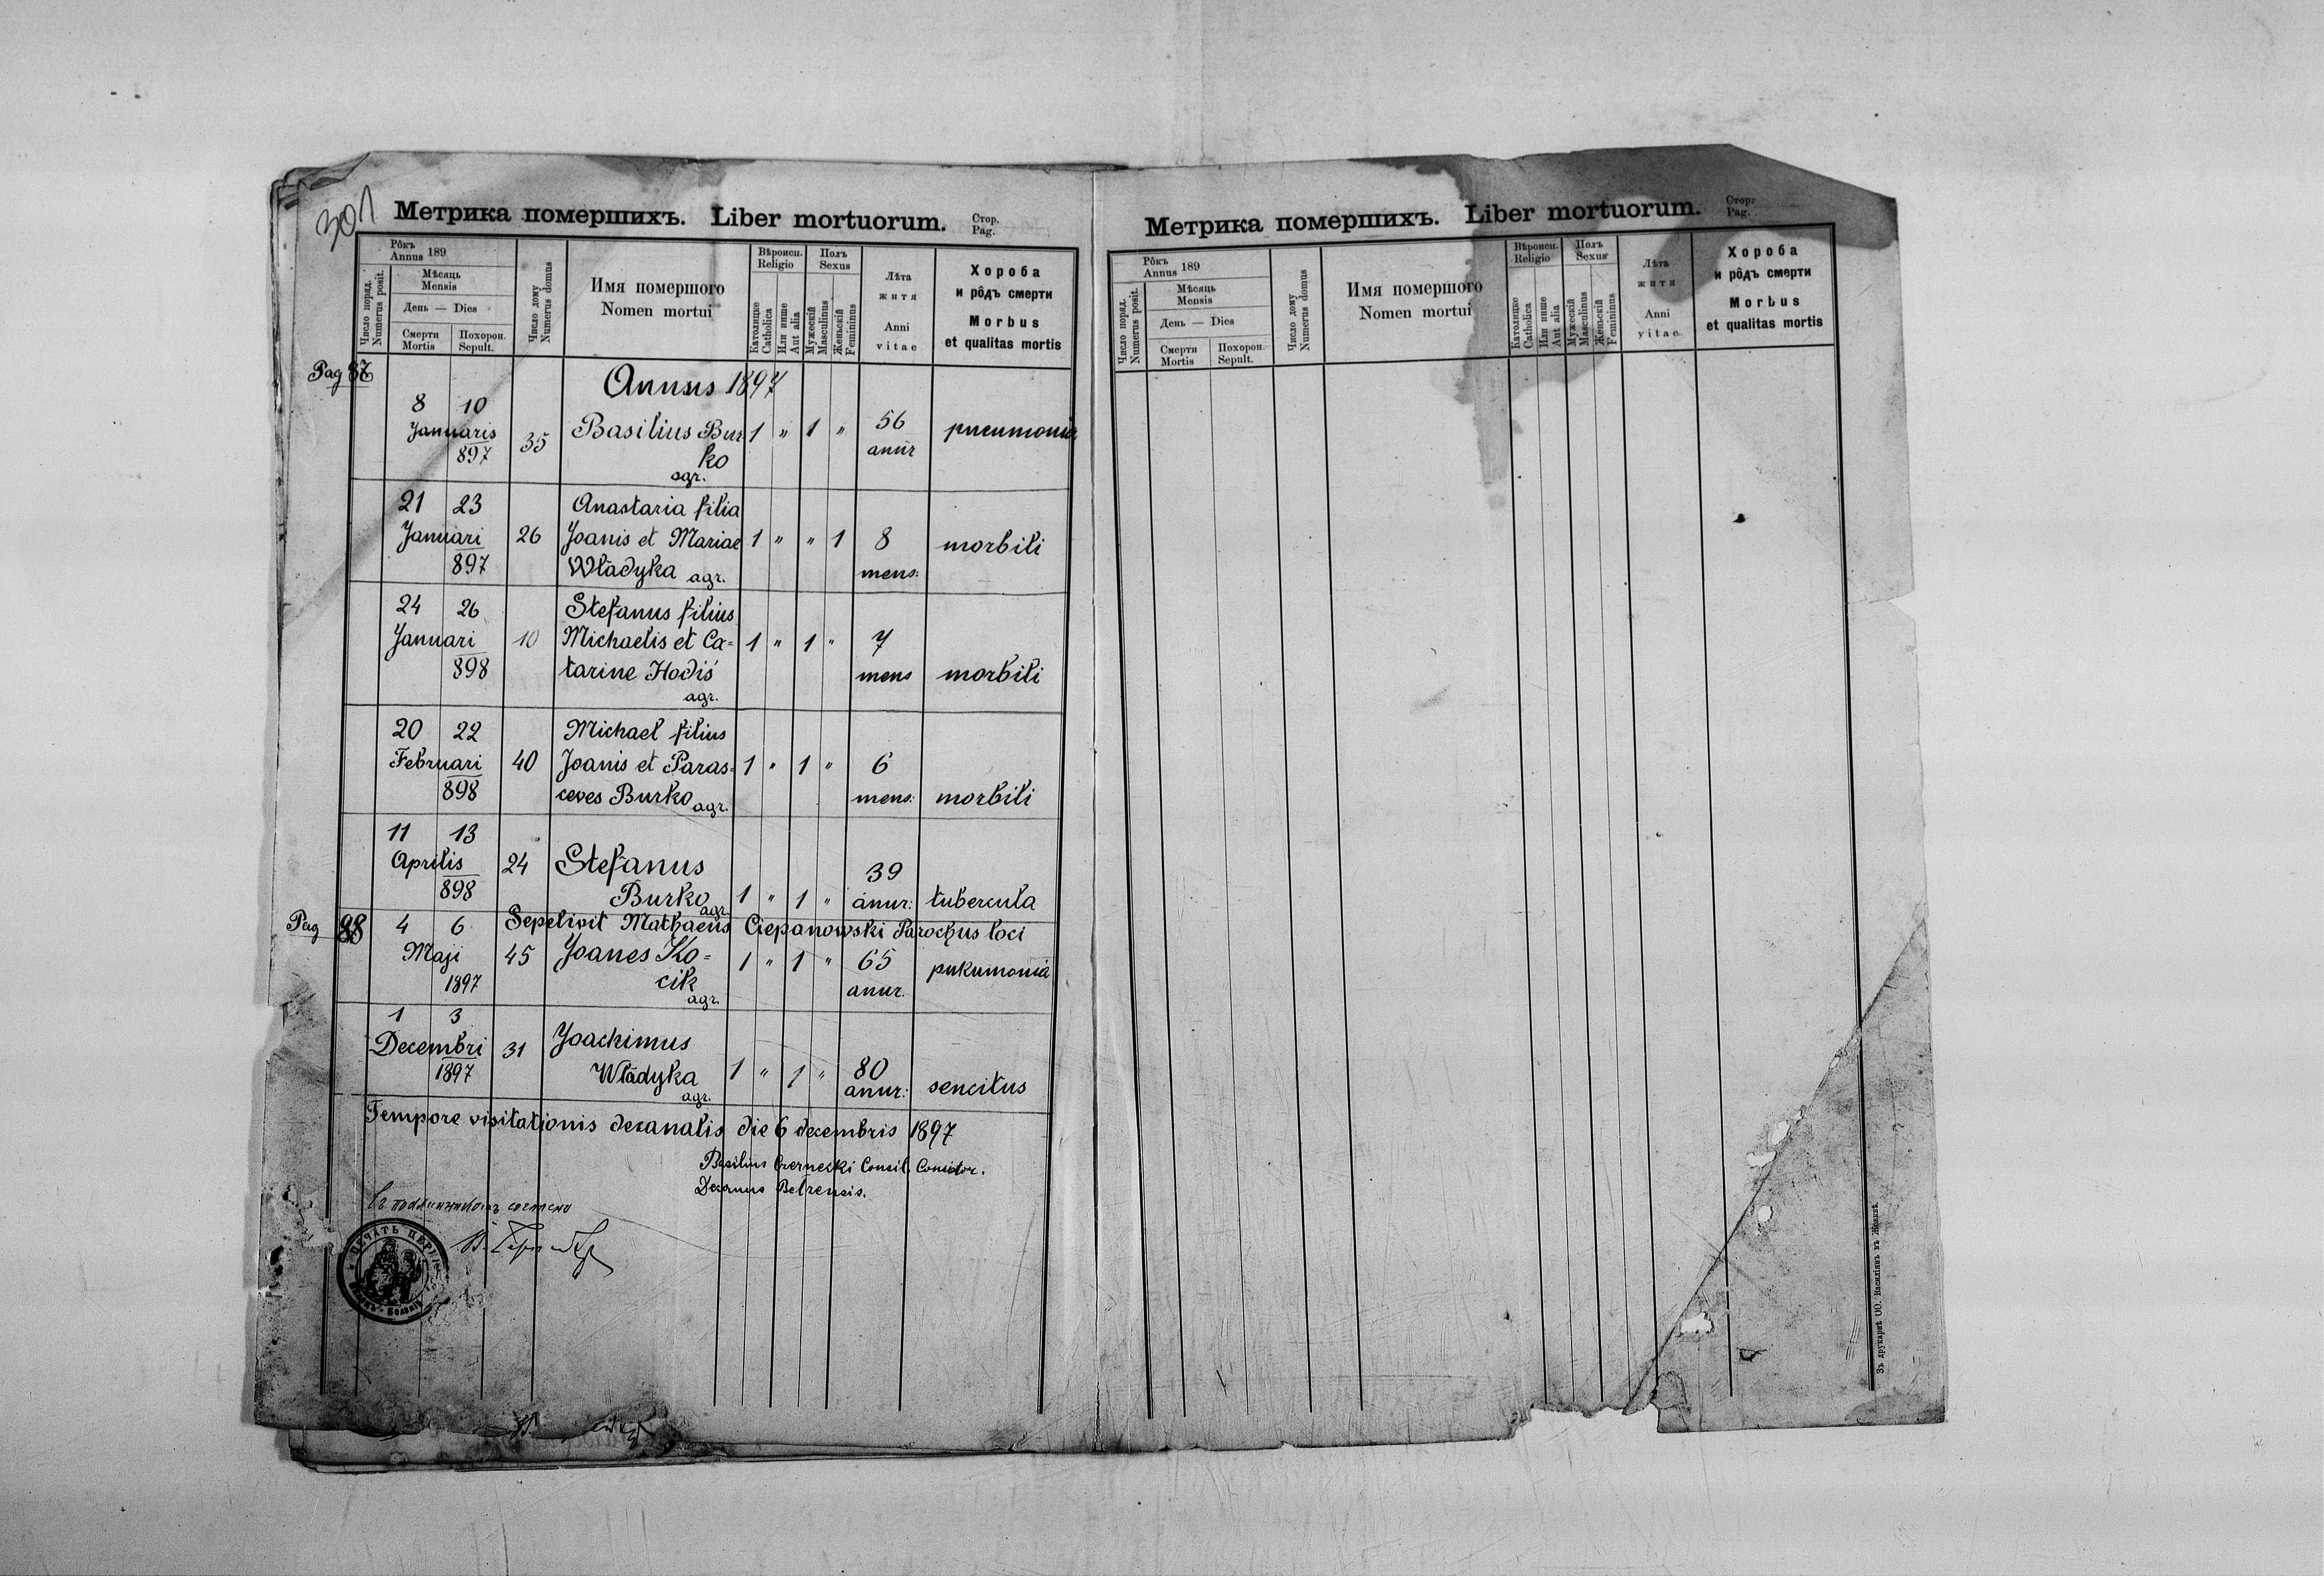 301
Метрика померших​ъ. Liber mortuorum.
Стор.
Pag.
Число поряд.
Numerus posit.
Рôкъ
Annus 189
Мѣсяць
Mensis
День — Dies
Смерти
Mortis
Похорон.
Sepult.
Число дому
Numerus domus
Имя помершого
Nomen mortui
Вѣроисп.
Religio
Католицке
Catholica
Или инше
Aut alia
Полъ
Sexus
Мужескій
Masculinus
Женьскій
Femininus
Лѣта
житя
Anni
vitae
Хороба
и рôдъ смерти
Morbus
et qualitas mortis
Pag 87
Annus 1897
8 10
Januaris 35 Basilius Bur 1 " 1 " 56 pneumonia
897 ko anur
agr.
21 23 Anastaria filia
Januari 26 Joanis et Mariae 1 " " 1 8 morbili
897 Władyka agr. mens:
24 26 Stefanus filius
Januari 10 Michaelis et Ca= 1 " 1 " 7
898 tarine Hodiś mens morbili
agr.
20 22 Michael filius
Februari 40 Joanis et Paras= 1 " 1 " 6
898 ceves Burko agr. mens: morbili
11 13
Aprilis 24 Stefanus 39
898 Burko 1 " 1 " anur: tubercula
agr.
Pag 88 4 6 Sepelivit Mathaeus Ciepanowski Parochus loci
Maji 45 Joanes Ko= 1 " 1 " 65 pukumonia
1897 cik anur.
agr.
1 3
Decembri 31 Joachimus
1897 Władyka 1 " 1 " 80 sencitus
agr. anur:
Tempore visitationis decanalis die 6 decembris 1897
Basilius Czernecki Consil. Consistor.
Decanus Belzensis.
Съ подлинникомъ согласно
ПЕЧАТЬ ЦЕРК
Метрика померших​ъ. Liber mortuorum.
Стор.
Pag.
Число поряд.
Numerus posit.
Рôкъ
Annus 189
Мѣсяць
Mensis
День — Dies
Смерти
Mortis
Похорон.
Sepult.
Число дому
Numerus domus
Имя помершого
Nomen mortui
Вѣроисп.
Religio
Католицке
Catholica
Или инше
Aut alia
Полъ
Sexus
Мужескій
Masculinus
Женьскій
Femininus
Лѣта
житя
Anni
vitae
Хороба
и рôдъ смерти
Morbus
et qualitas mortis
Зъ друкарнѣ ОО. Василіянъ въ Жовквѣ.